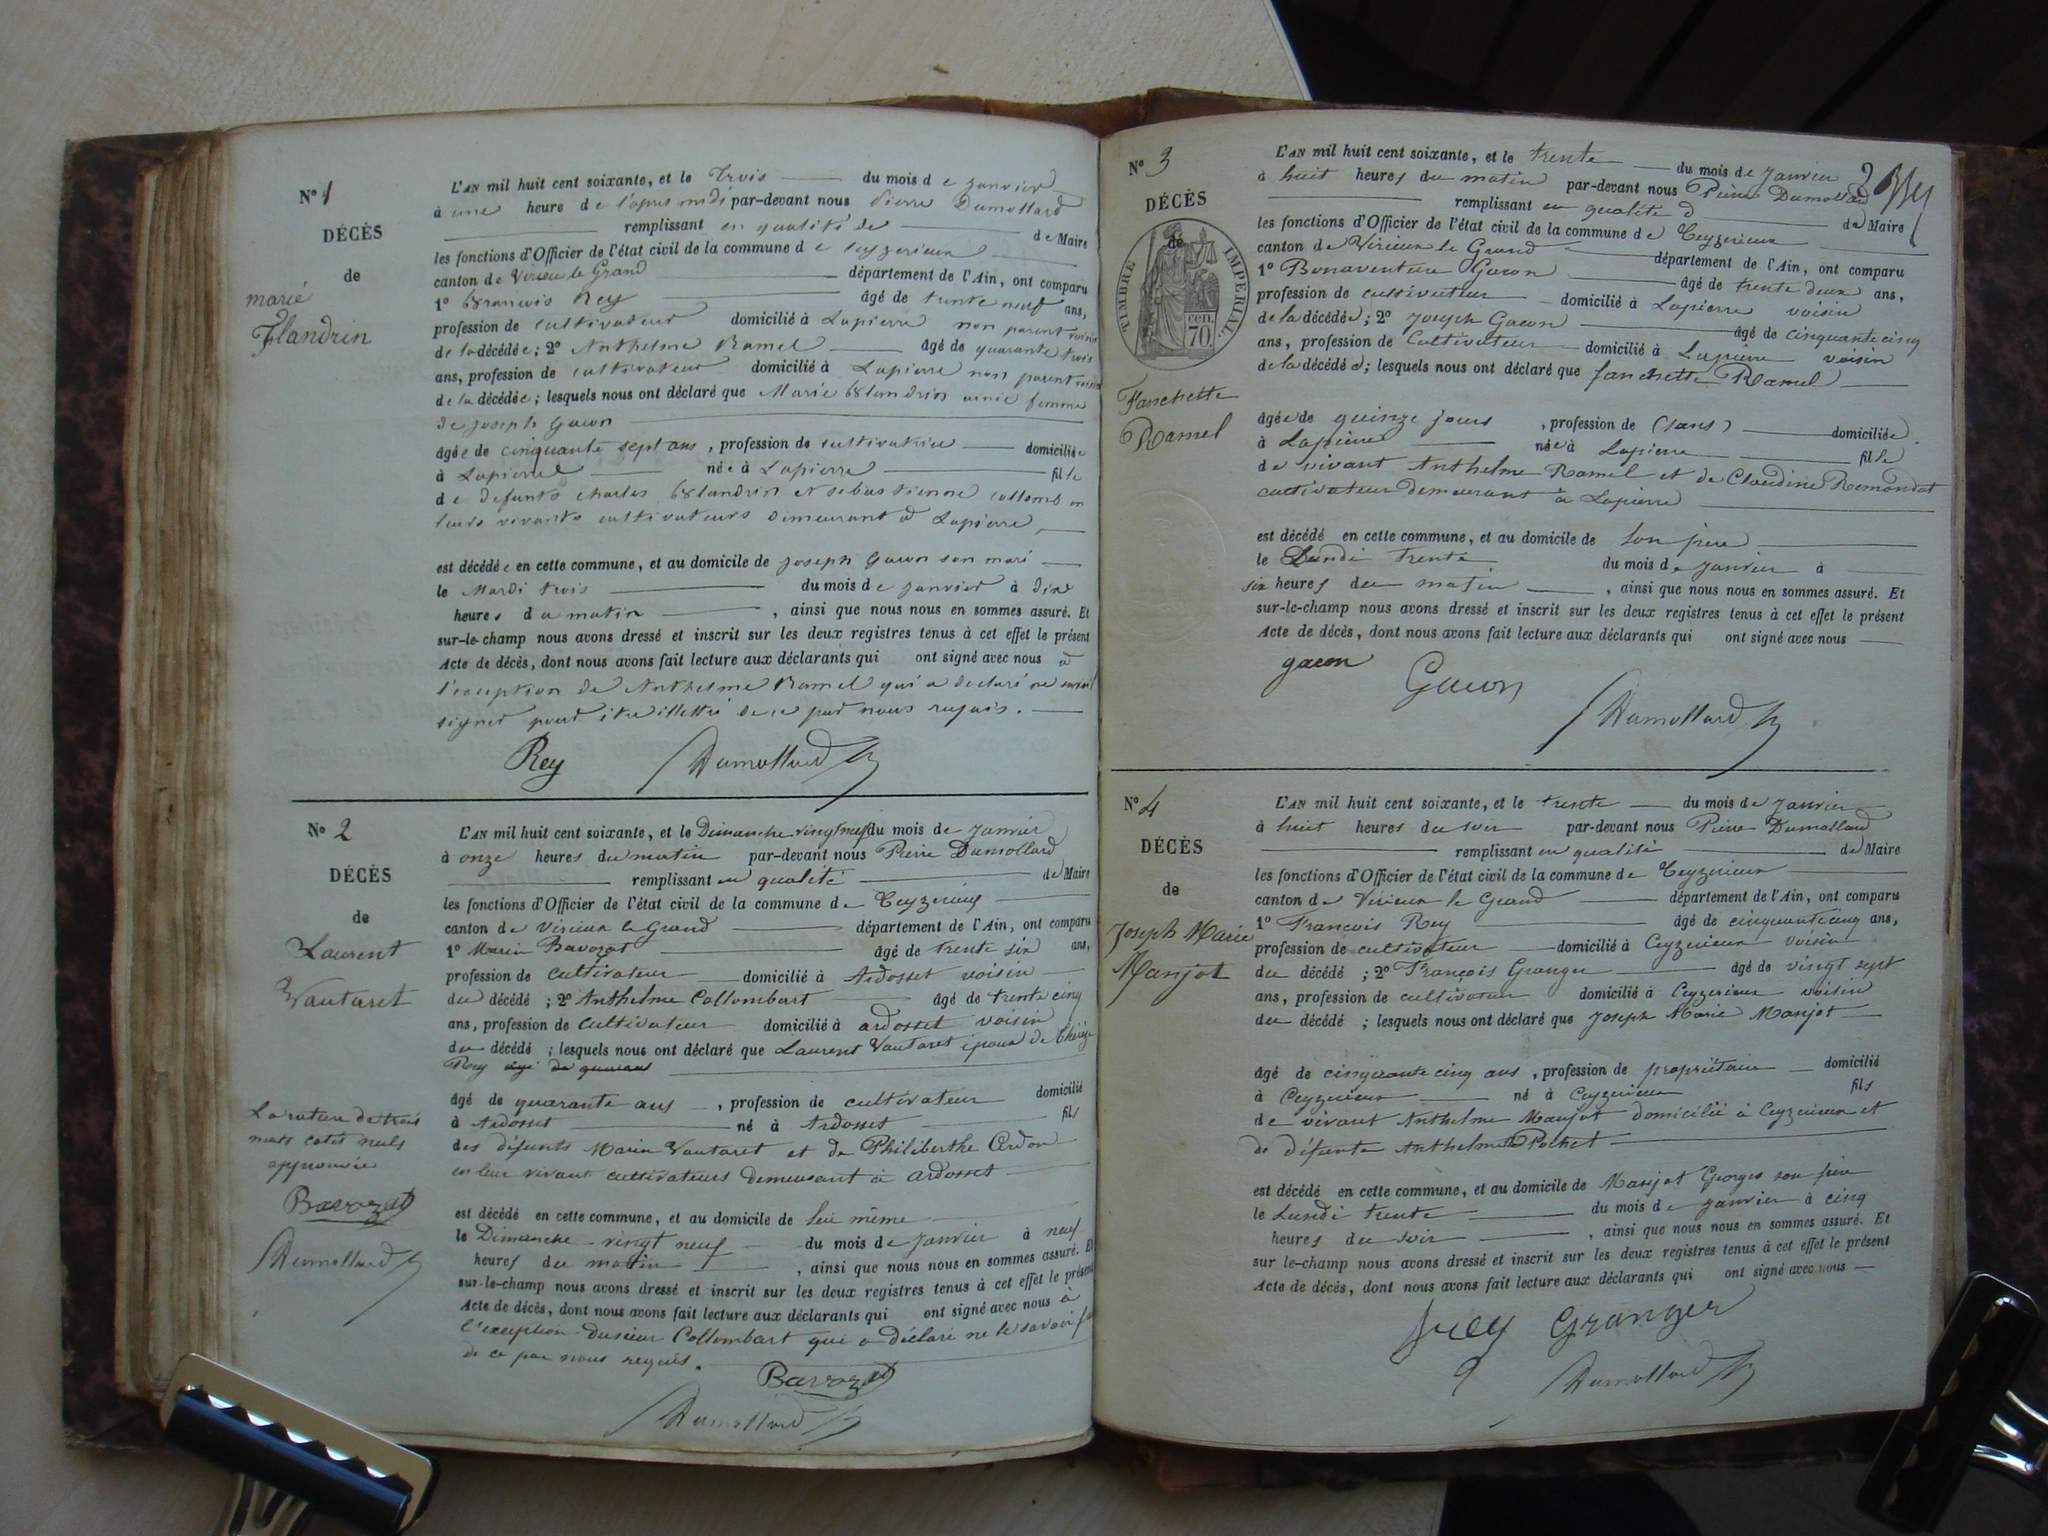 N° 1
DÉCÈS
de
marie
Flandrin
L'AN mil huit cent soixante, et le trois du mois de janvier
à une heure de l'apres midi par-devant nous Pierre Dumollard
remplissant en qualité de de Maire
les fonctions d'Officier de l'état civil de la commune de Ceyzerieux
canton de Virieu le Grand département de l'Ain, ont comparu
1° francois Rey âgé de trente neuf ans,
profession de cultivateur domicilié à Lapierre non parent voisin
de la décédée; 2° Anthelme Ramel âgé de quarante trois
ans, profession de cultivateur domicilié à Lapierre non parent voisin
de la décédée; lesquels nous ont déclaré que Marie flandrin femme
de joseph Gacon
âgée de cinquante sept ans, profession de cultivatrice domiciliée
à Lapierre née à Lapierre fille
de defunts charles flandrin et sebastienne collomb en
leurs vivants cultivateurs demeurant à Lapierre
est décédée en cette commune, et au domicile de joseph Gacon son mari
le Mardi trois du mois de janvier à dix
heures du matin, ainsi que nous nous en sommes assuré. Et
sur-le-champ nous avons dressé et inscrit sur les deux registres tenus à cet effet le présent
Acte de décès, dont nous avons fait lecture aux déclarants qui ont signé avec nous à
l'exception de Anthelme Ramel qui a declaré ne savoir
signer pour être illettré de ce par nous requis.
Rey Dumollard
N° 2
DÉCÈS
de
Laurent
Vautaret
La rature de trois
mots cotés nuls
approuvée
Bavozat
Dumollard
L'AN mil huit cent soixante, et le Dimanche vingt neuf du mois de janvier
à onze heures du matin par-devant nous Pierre Dumollard
remplissant en qualité de Maire
les fonctions d'Officier de l'état civil de la commune de Ceyzerieux
canton de Virieux le Grand département de l'Ain, ont comparu
1° Marin Bavozat âgé de trente six ans,
profession de cultivateur domicilié à Ardosset voisin
du décédé; 2° Anthelme Collombart âgé de trente cinq
ans, profession de cultivateur domicilié à ardosset voisin
du décédé; lesquels nous ont déclaré que Laurent Vautaret époux de Thérèze
Rey âgé de quarante
âgé de quarante ans, profession de cultivateur domicilié
à Ardosset né à Ardosset fils
des défunts Marin Vautaret et de Philiberthe Cerdon
en leur vivant cultivateurs demeurant à ardosset
est décédé en cette commune, et au domicile de lui même
le Dimanche vingt neuf du mois de janvier à neuf
heures du matin, ainsi que nous nous en sommes assuré. Et
sur-le-champ nous avons dressé et inscrit sur les deux registres tenus à cet effet le présent
Acte de décès, dont nous avons fait lecture aux déclarants qui ont signé avec nous à
l'exception du sieur Collombart qui a déclaré ne le savoir
de ce par nous requis.
Bavozat
Dumollard
N° 3
DÉCÈS
de
TIMBRE IMPERIAL
70 cen.
Fanchette
Ramel
2
L'AN mil huit cent soixante, et le trente du mois de janvier
à huit heures du matin par-devant nous Pierre Dumollard
remplissant en qualité d de Maire
les fonctions d'Officier de l'état civil de la commune de Ceyzerieux
canton de Virieux le Grand département de l'Ain, ont comparu
1° Bonaventure Gacon âgé de trente deux ans,
profession de cultivateur domicilié à Lapierre voisin
de la décédée; 2° joseph Gacon âgé de cinquante cinq
ans, profession de cultivateur domicilié à Lapierre voisin
de la décédée; lesquels nous ont déclaré que fanchette Ramel
âgée de quinze jours, profession de (sans) domiciliée
à Lapierre née à Lapierre fille
de vivant Anthelme Ramel et de Claudine Remondat
cultivateur demeurant à Lapierre
est décédé en cette commune, et au domicile de son père
le Lundi trente du mois de janvier à
six heures du matin, ainsi que nous nous en sommes assuré. Et
sur-le-champ nous avons dressé et inscrit sur les deux registres tenus à cet effet le présent
Acte de décès, dont nous avons fait lecture aux déclarants qui ont signé avec nous
gacon Gacon
Dumollard
N° 4
DÉCÈS
de
Joseph Marie
Manjot
L'AN mil huit cent soixante, et le trente du mois de janvier
à huit heures du soir par-devant nous Pierre Dumollard
remplissant en qualité de Maire
les fonctions d'Officier de l'état civil de la commune de Ceyzerieux
canton de Virieux le Grand département de l'Ain, ont comparu
1° Francois Rey âgé de cinquante cinq ans,
profession de cultivateur domicilié à Ceyzerieux voisin
du décédé; 2° François Granger âgé de vingt sept
ans, profession de cultivateur domicilié à Ceyzerieux voisin
du décédé; lesquels nous ont déclaré que Joseph Marie Manjot
âgé de cinquante cinq ans, profession de propriétaire domicilié
à Ceyzerieux né à Ceyzerieux fils
de vivant Anthelme Manjot domicilié à Ceyzerieux et
de défunte Anthelmette Pochet
est décédé en cette commune, et au domicile de Manjot Georges son frère
le Lundi trente du mois de janvier à cinq
heures du soir, ainsi que nous nous en sommes assuré. Et
sur le-champ nous avons dressé et inscrit sur les deux registres tenus à cet effet le présent
Acte de décès, dont nous avons fait lecture aux déclarants qui ont signé avec nous
Rey Granger
Dumollard